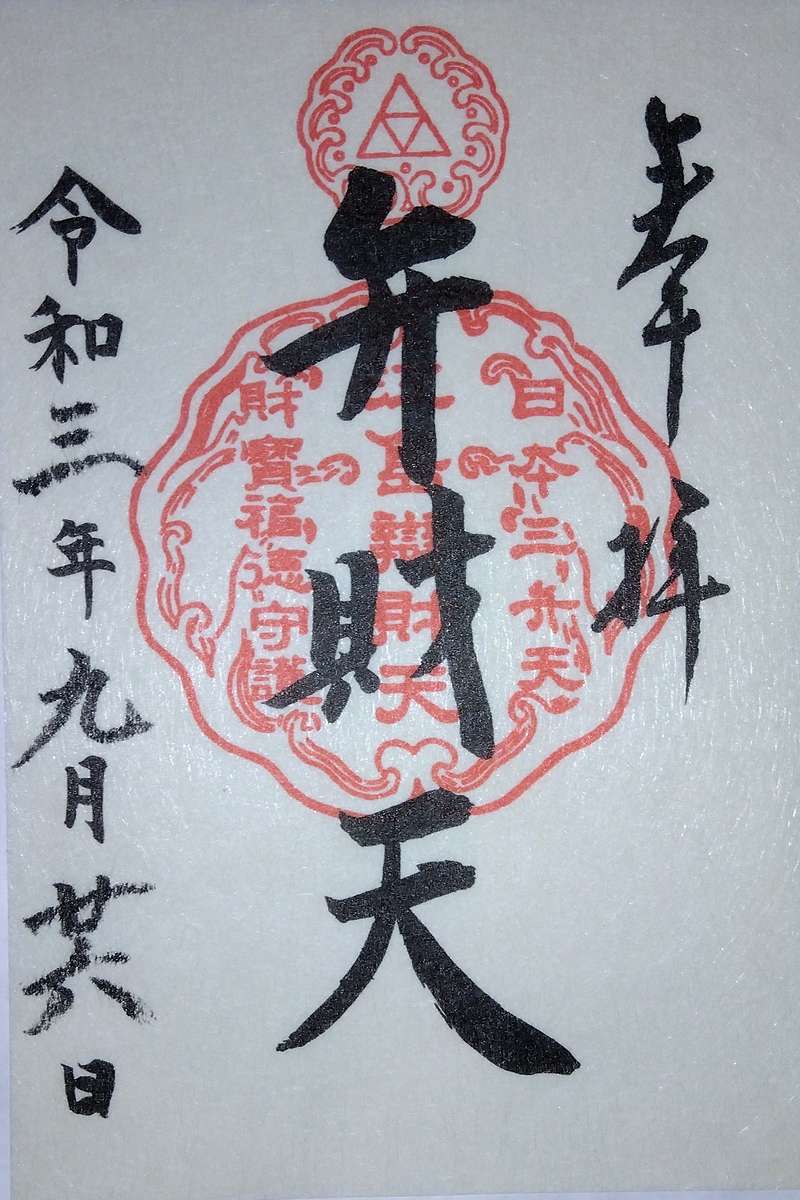 奉拝
日本三弁天
江島辯財天
財寳福徳守護
弁財天
令和三年九月廿六日